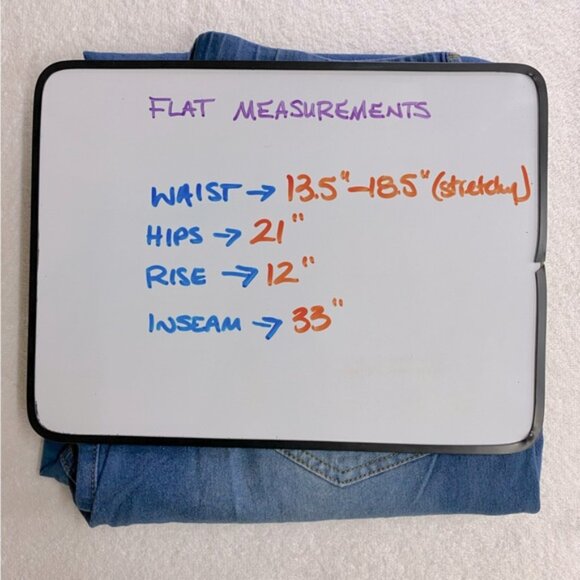 FLAT MEASUREMENTS
WAIST → 13.5"-18.5" (stretchy)
HIPS → 21"
RISE → 12"
INSEAM → 33"